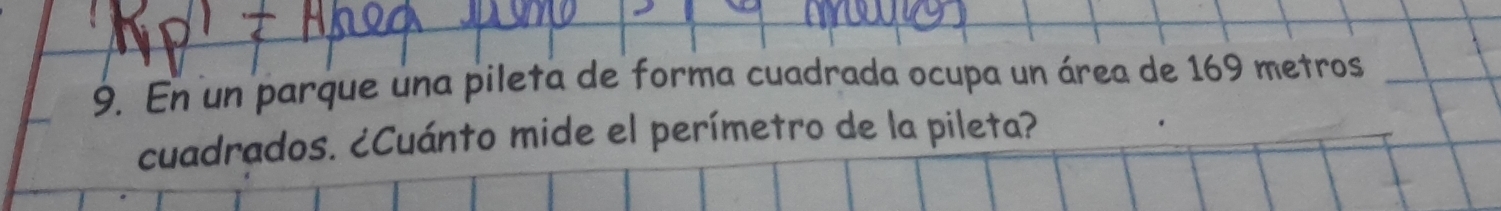 9. En un parque una pileta de forma cuadrada ocupa un área de 169 metros
cuadrados. ¿Cuánto mide el perímetro de la pileta?